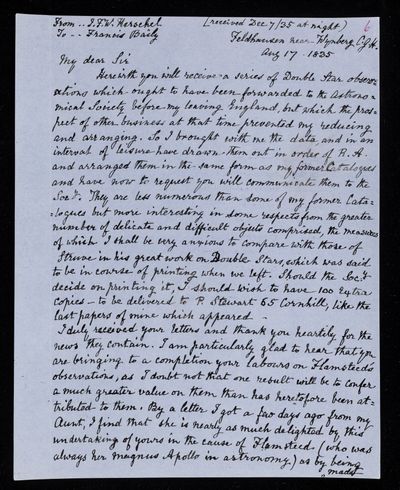 From .. J.F.W. Herschel
[received Dec 7/35 at night)
6
To .. Francis Baily
Feldhausen near Wynberg C.G.H.
Aug 17. 1835
My dear Sir
Herewith you will receive a series of Double Star observ-
ations which ought to have been forwarded to the Astrono-
mical Society before my leaving England, but which the pres-
pect of other business at that time prevented my reducing
and arranging. So I brought with me the data and in an
interval of leisure have drawn them out in order of R.A.
and arranged them in the same form as my former Catalogues
and have now to request you will communicate them to the
Socy. They are less numerous than some of my former Cata-
-logues but more interesting in some respects from the greater
number of delicate and difficult objects comprised, the measures
of which I shall be very anxious to compare with those of
Struve in his great work on Double Stars, which was said
to be in course of printing when we left. Should the Socy
decide on printing it, I should wish to have 100 extra
copies - to be delivered to P. Stewart 65 Cornhill, like the
last papers of mine which appeared -
I duly received your letters and thank you heartily for the
news they contain. I am particularly glad to hear that you
are bringing to a completion your labours on Flamsteed's
observations, as I doubt not that one result will be to confer
a much greater value on them than has heretofore been at-
tributed to them. By a letter I got a few days ago from my
Aunt, I find that she is nearly as much delighted by this
undertaking of yours in the cause of Flamsteed (who was
always her magnus Apollo in astronomy) as by being
made